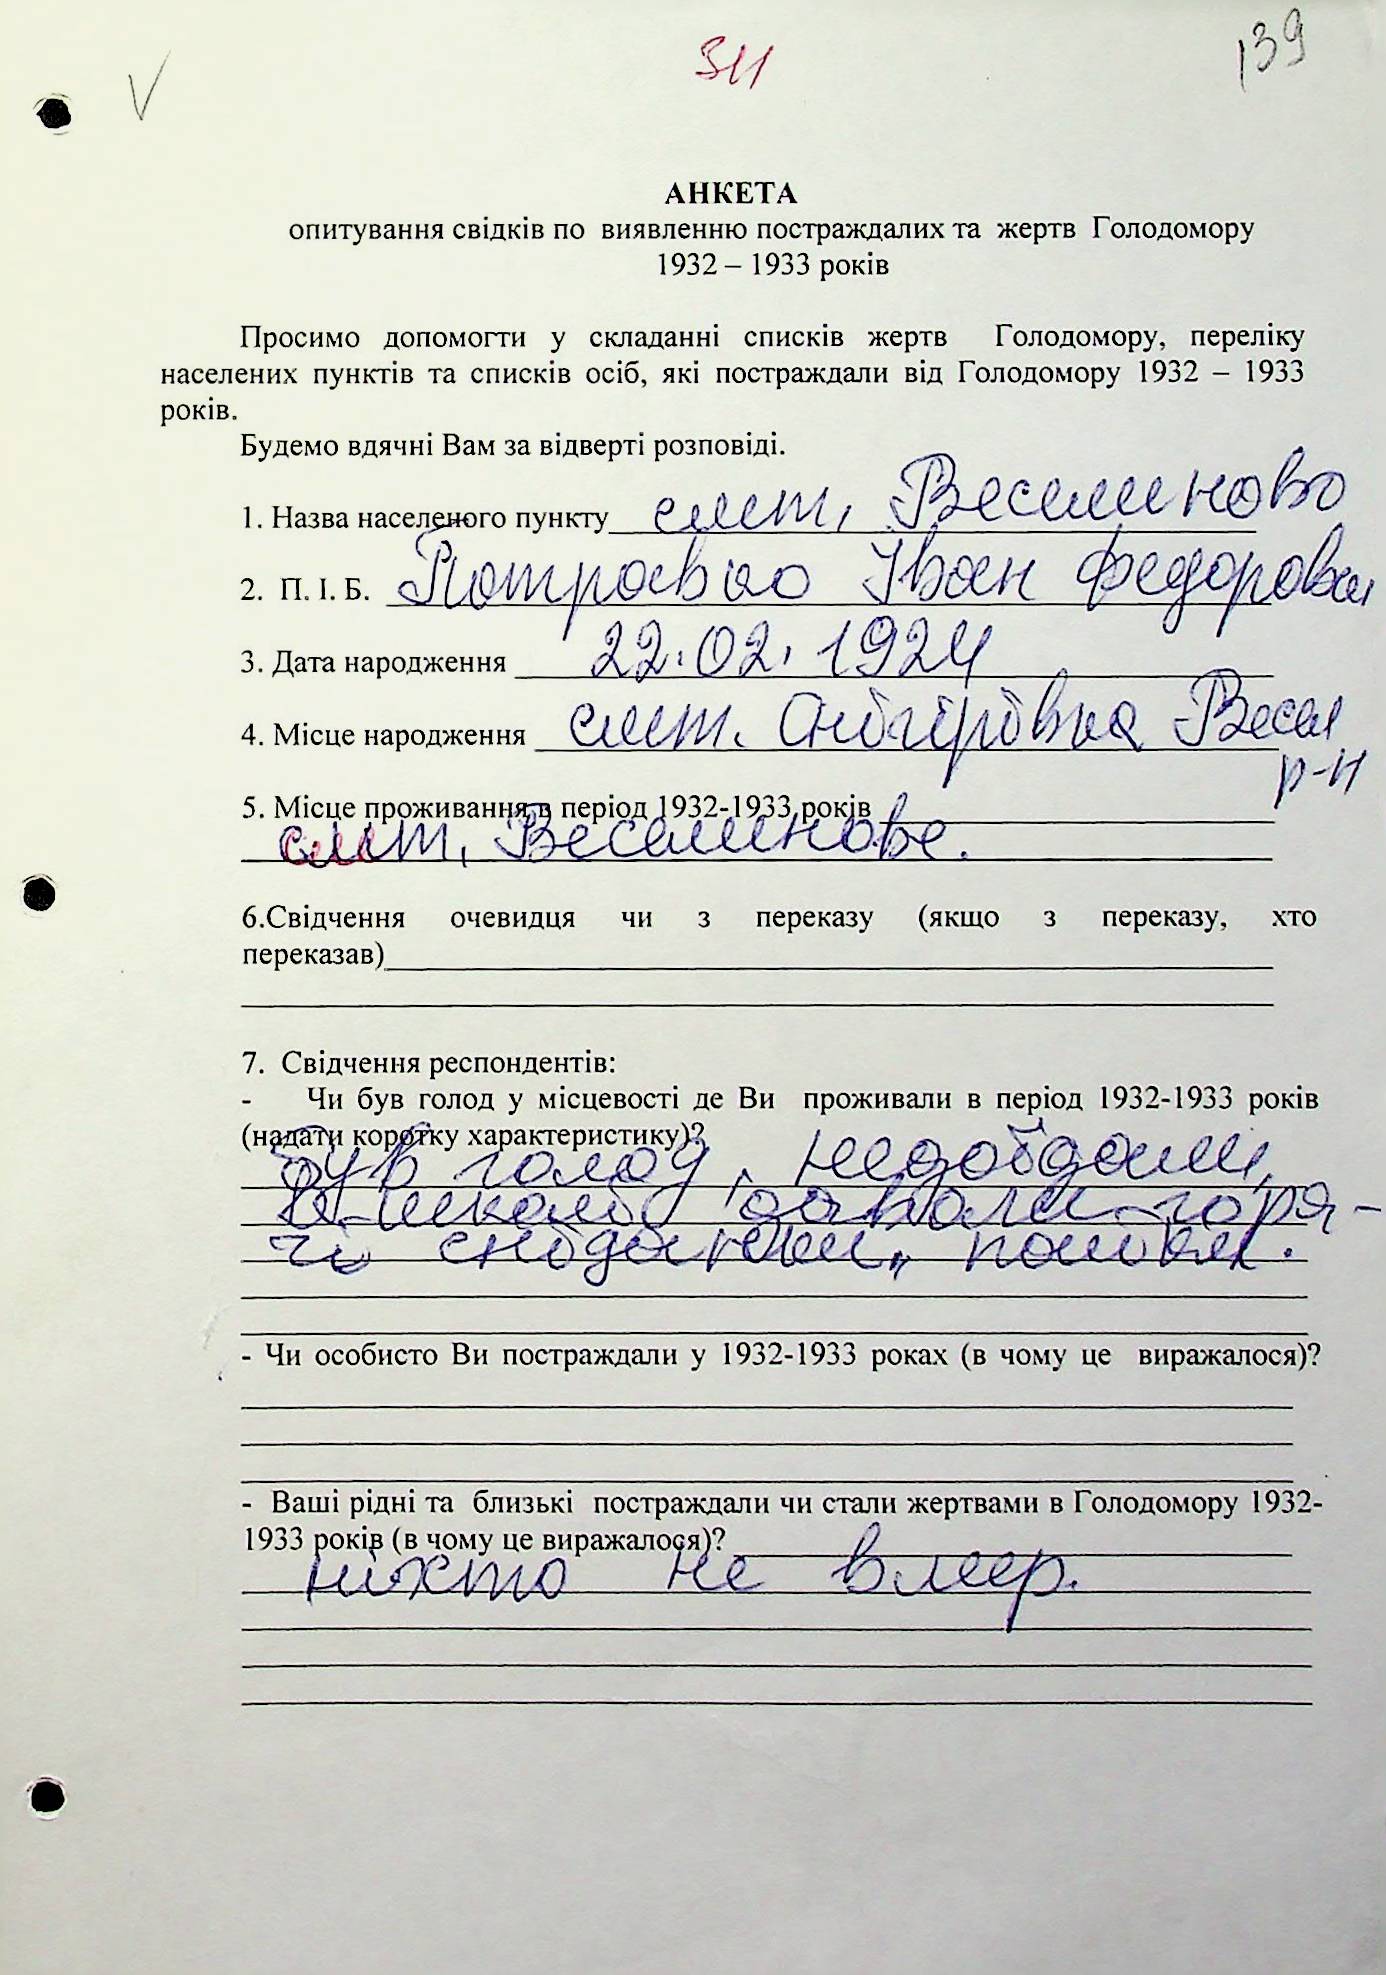 V
311
139
АНКЕТА
опитування свідків по виявленню постраждалих та жертв Голодомору
1932 – 1933 років
Просимо допомогти у складанні списків жертв Голодомору, переліку
населених пунктів та списків осіб, які постраждали від Голодомору 1932 – 1933
років.
Будемо вдячні Вам за відверті розповіді.
1. Назва населеного пункту смт. Веселиново
2. П. І. Б. Іван Федорович
3. Дата народження 22.02.1924
4. Місце народження смт. Снігірівка Весел
р-н
5. Місце проживання в період 1932-1933 років
смт. Веселинове.
6.Свідчення очевидця чи з переказу (якщо з переказу, хто
переказав)
7. Свідчення респондентів:
- Чи був голод у місцевості де Ви проживали в період 1932-1933 років
(надати коротку характеристику)?
Був голод, недоїдали,
В школі давали горя-
чі сніданки,
- Чи особисто Ви постраждали у 1932-1933 роках (в чому це виражалося)?
- Ваші рідні та близькі постраждали чи стали жертвами в Голодомору 1932-
1933 років (в чому це виражалося)?
ніхто не вмер.